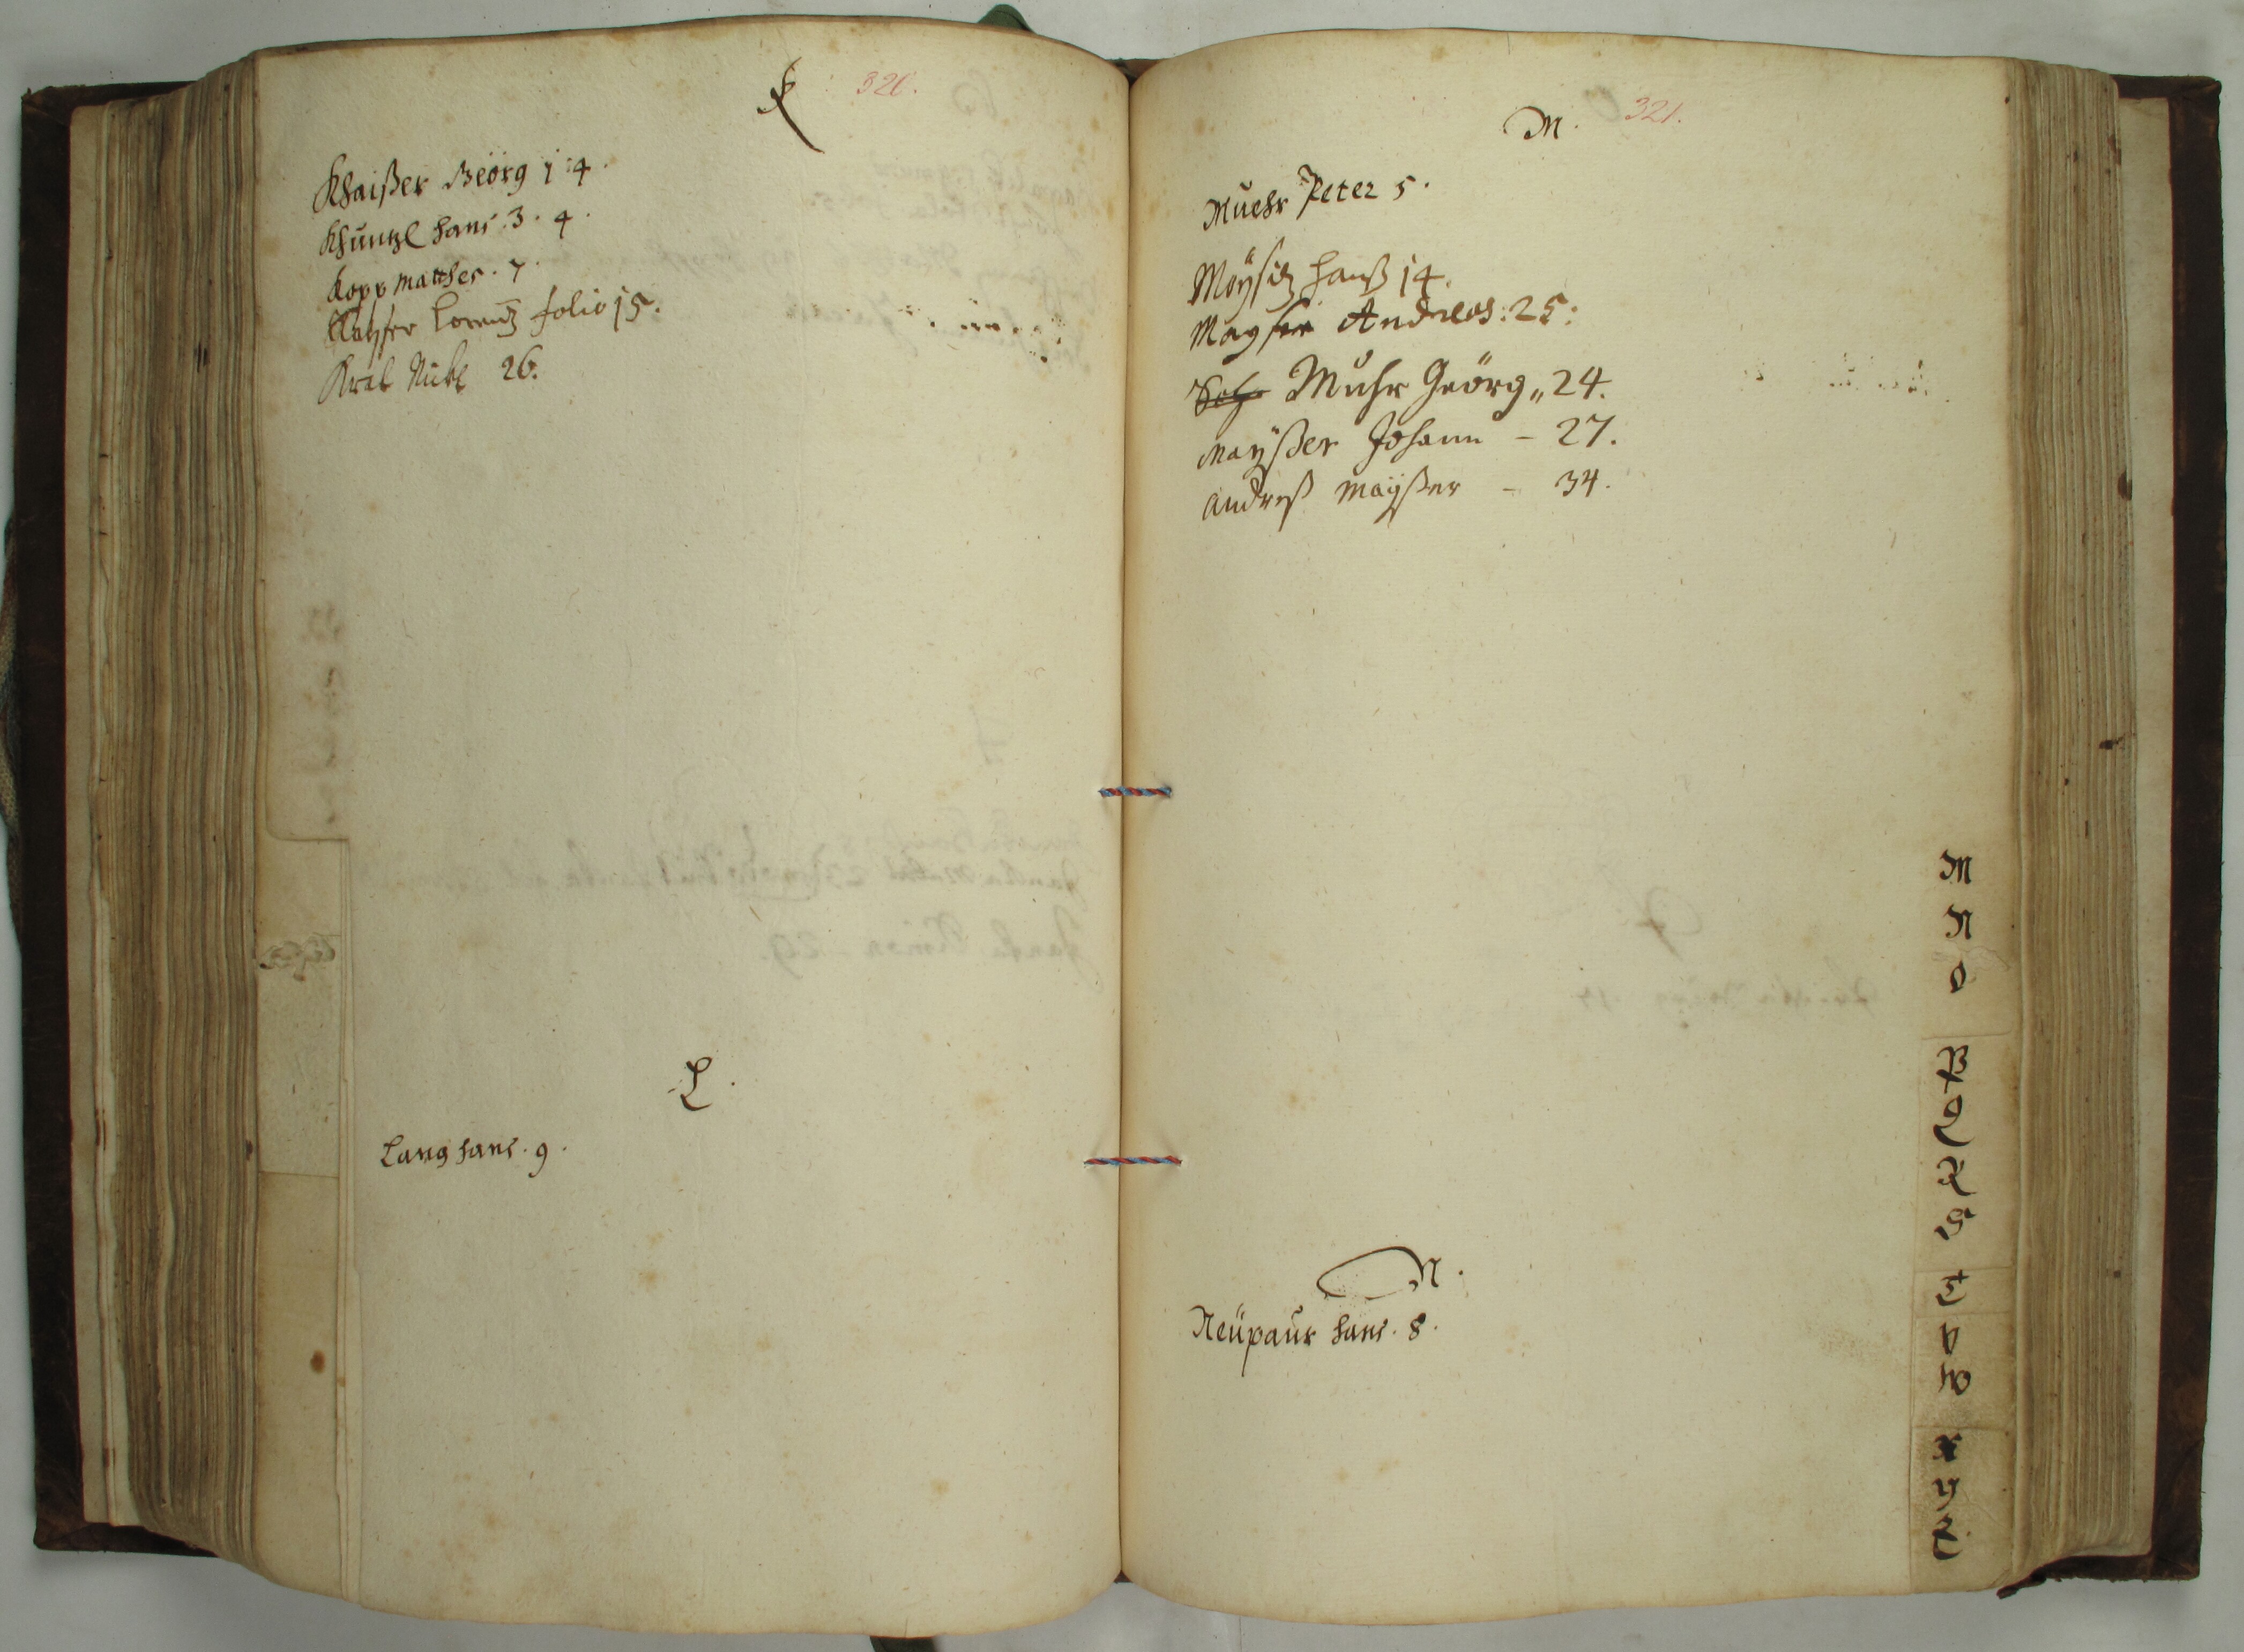 K 320.
Khaißer Georg 1 : 4.
Khüntzl Hans. 3. 4.
Kopp Mathes. 7.
Kaÿser Lorentz folio 15.
Krab Nickl 26.
L.
Lang Hans. 9.
M. 321.
Muehr Peter 5.
Moÿsitz Hanß 14.
Mayser Andreas: 25:
Muhr Geörg„ 24.
Maÿßer Johann – 27.
Andreß Maÿßer – 34.
N.
Neüpaur Hans. 8.
M
N
O
P
Q
R
S
T
V
W
X
Y
Z